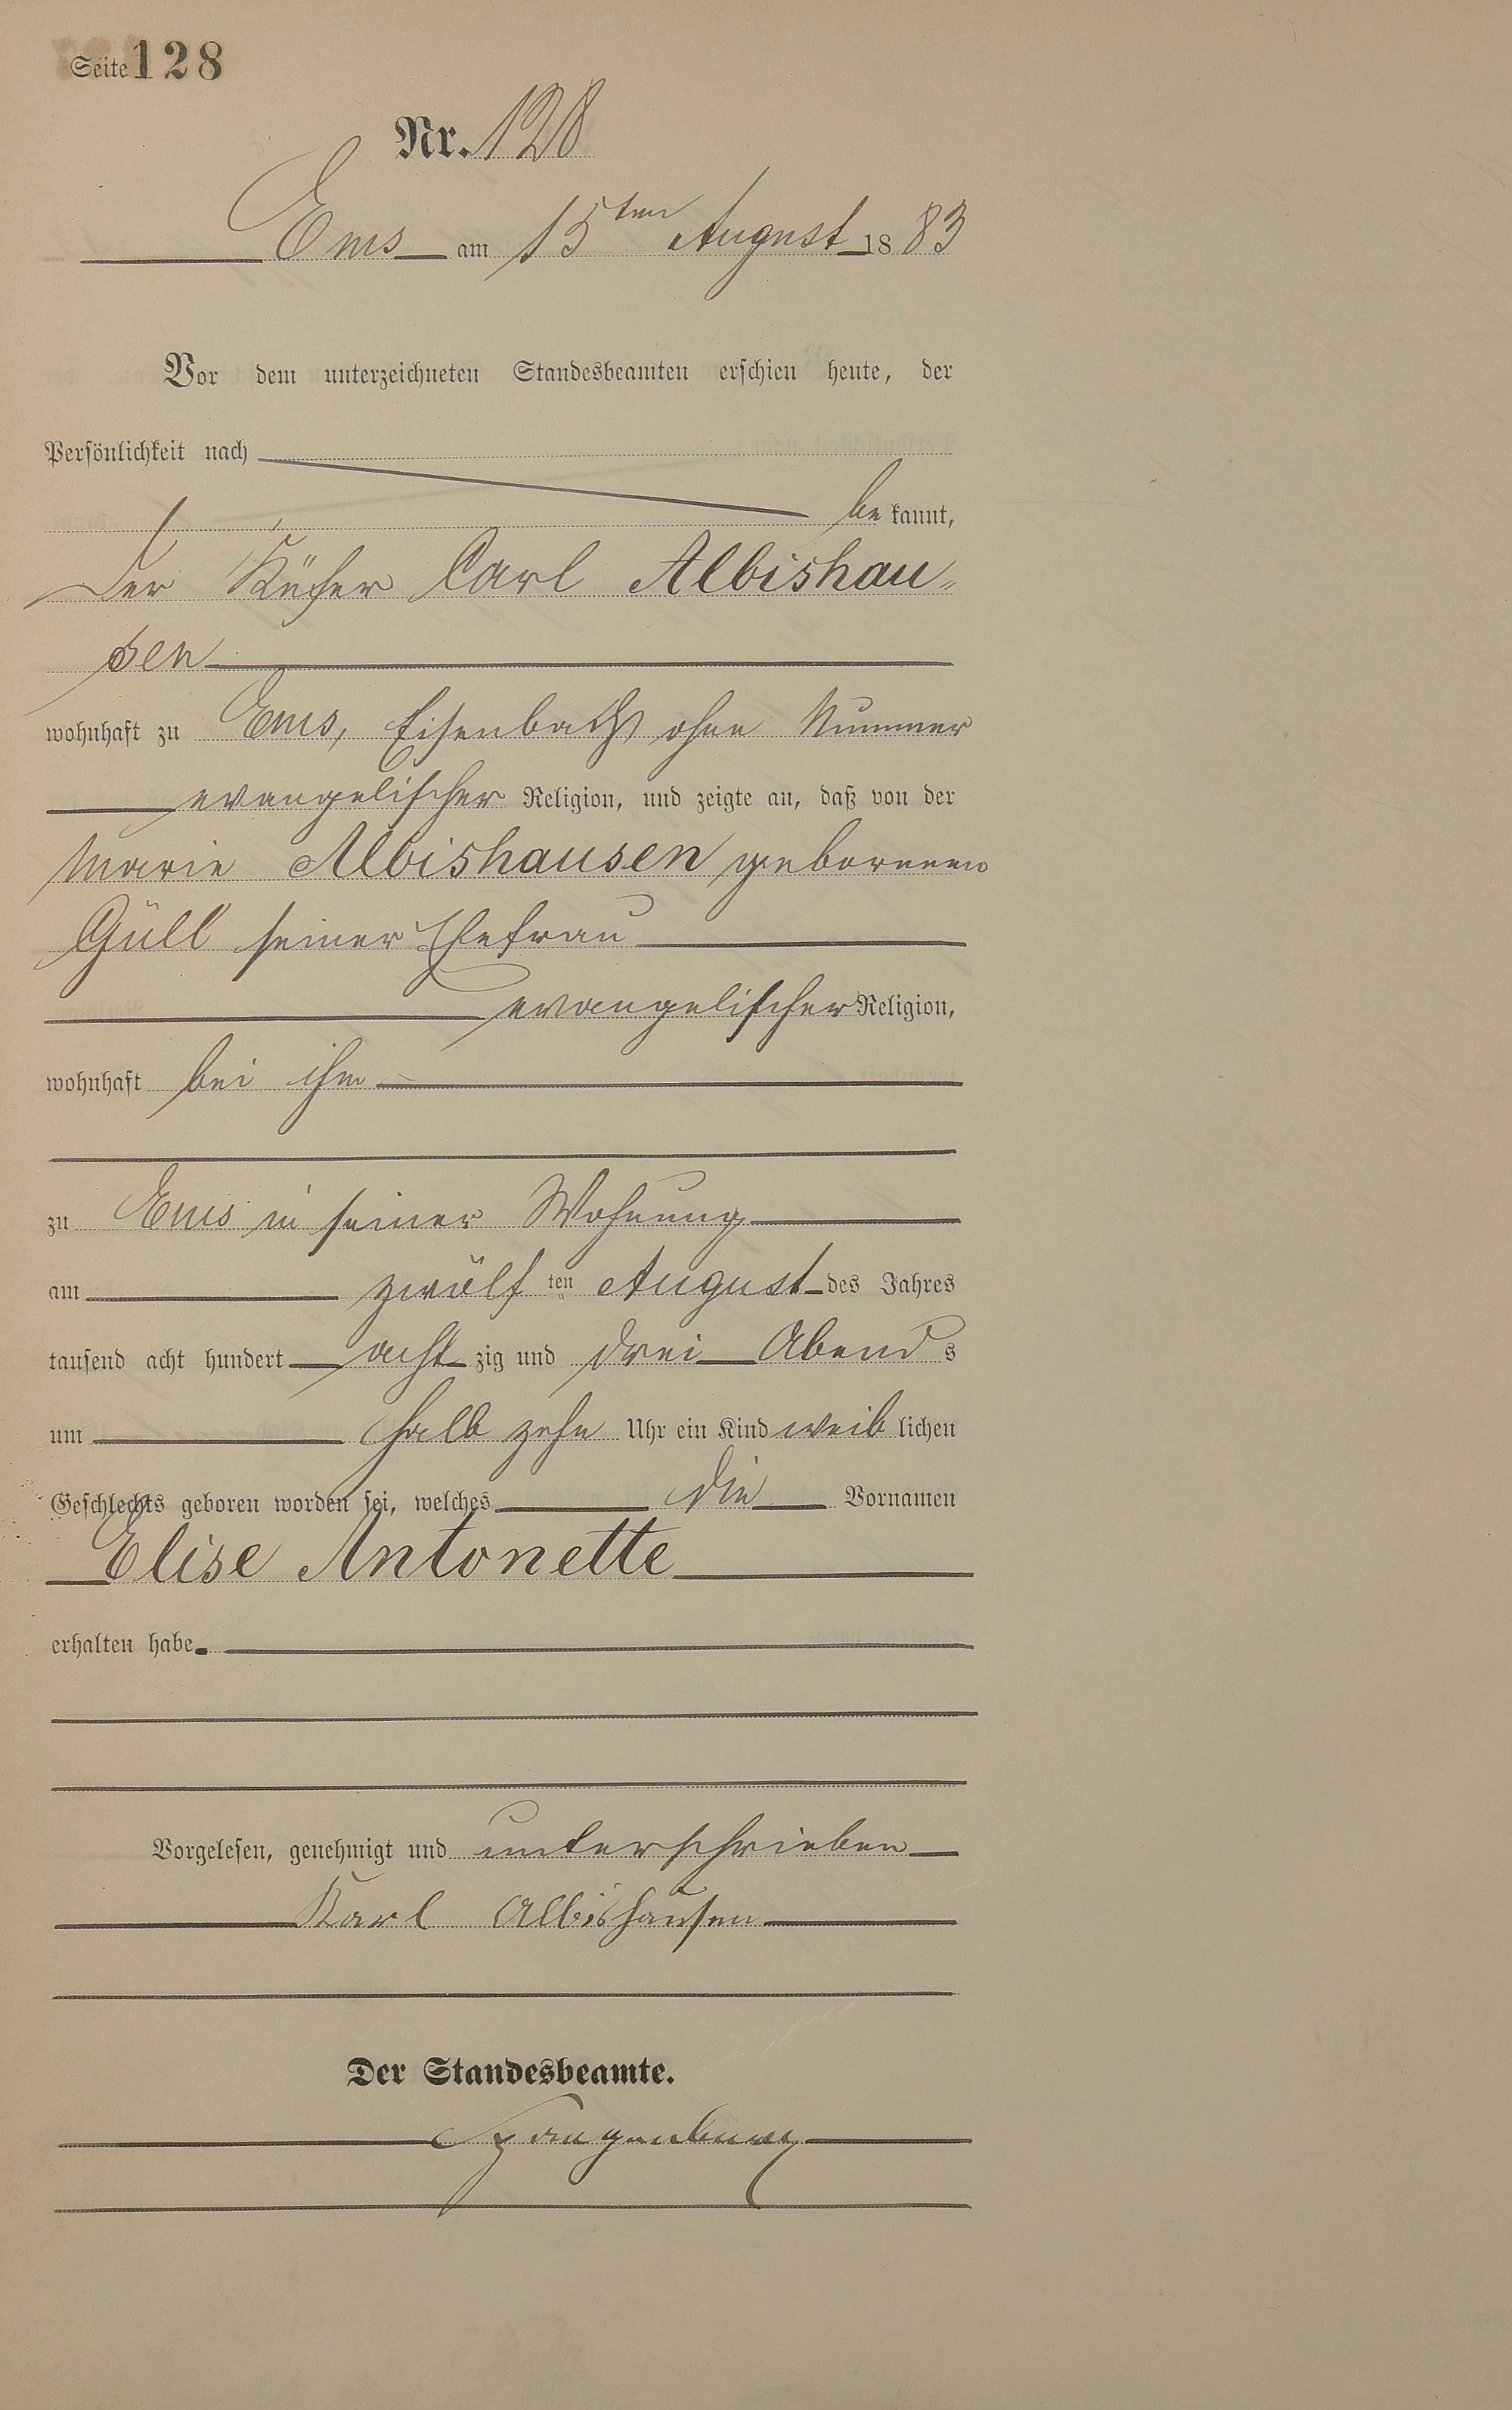 Seite 128
Nr. 128
Ems am 15ten August 1883
Vor dem unterzeichneten Standesbeamten erschien heute, der
Persönlichkeit nach
be kannt,
der Küfer Carl Albishau-
sen
wohnhaft zu Ems, Eisenbach ohne Nummer
evangelischer Religion, und zeigte an, daß von der
Marie Albishausen geborenen
Güll seiner Ehefrau
evangelischer Religion,
wohnhaft bei ihm
zu Ems in seiner Wohnung
am zwölf ten August des Jahres
tausend acht hundert acht zig und drei Abend s
um halb zehn Uhr ein Kind weib lichen
Geschlechts geboren worden sei, welches die Vornamen
Elise Antonette
erhalten habe.
Vorgelesen, genehmigt und unterschrieben
Karl Albishausen
Der Standesbeamte.